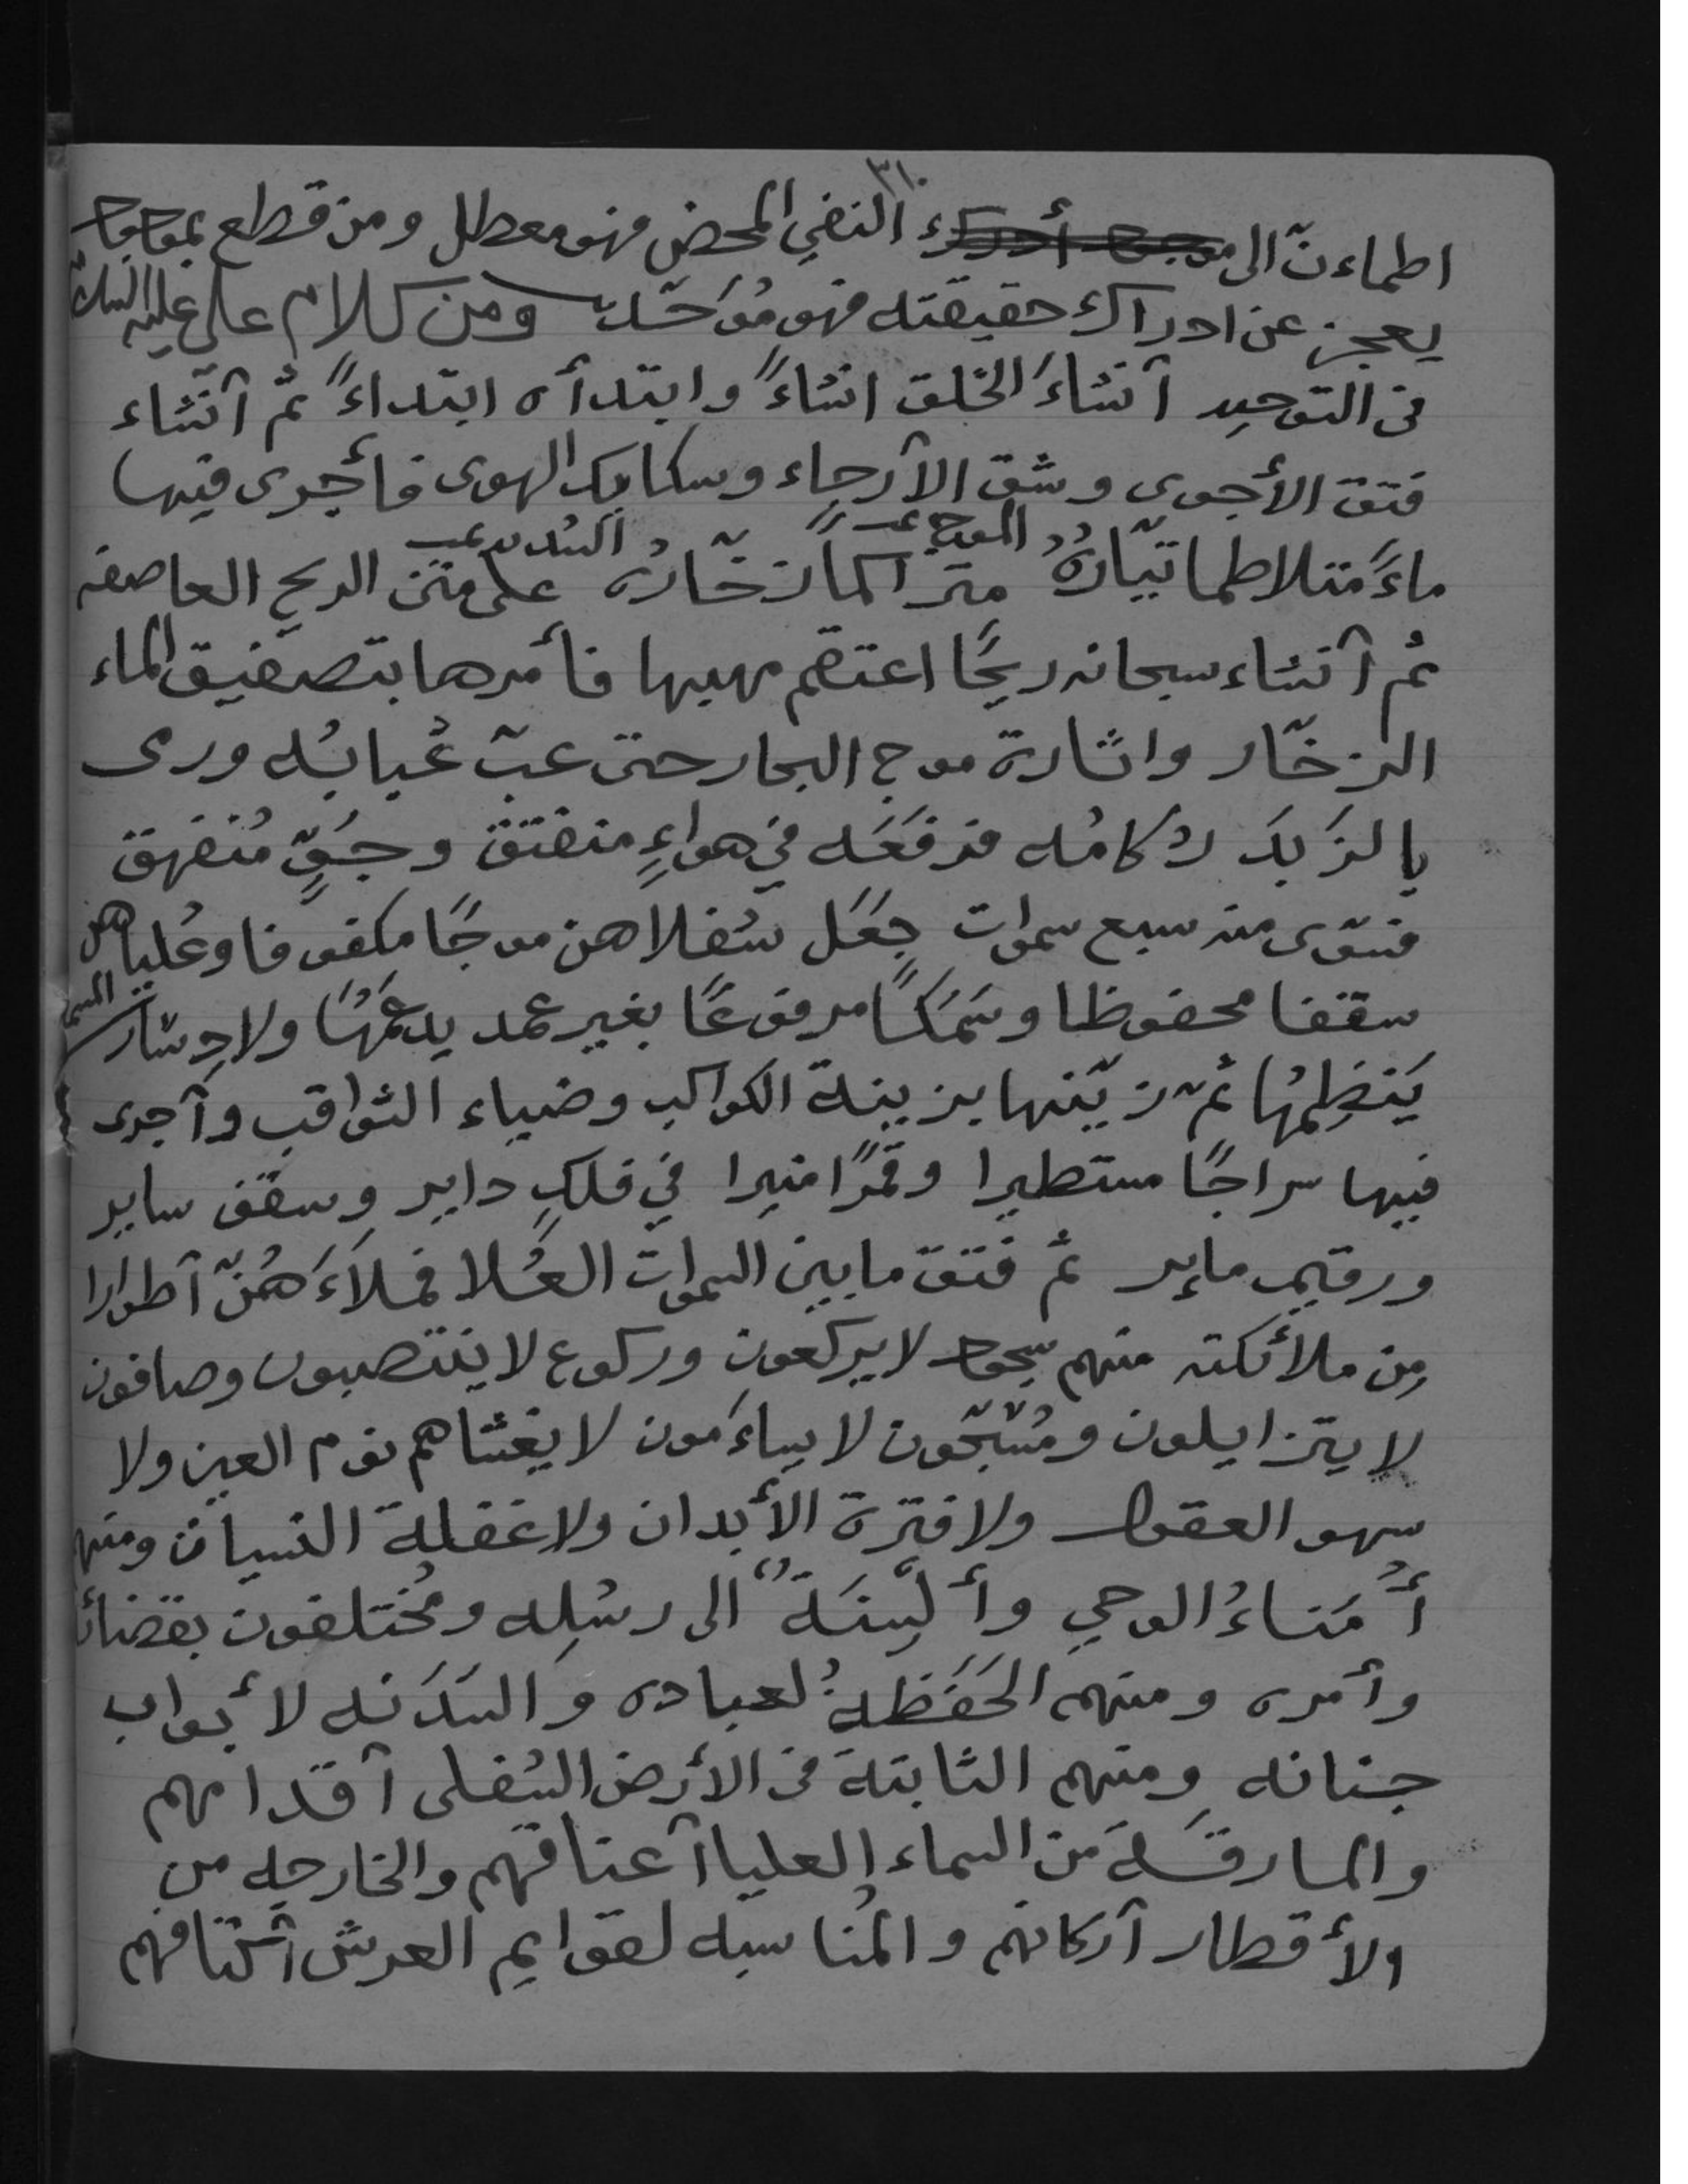 ٣١٠
اطماءنّ الى النفي المحض فهو معطل ومن قطع بموجود
يعجز عن ادراك حقيقته فهو مُوَحّد ومن كلام علي عليه السلام
في التوحيد آنشاءَ الخلق انشاءً وابتدأه ابتداءً ثم آنشاء
فتق الأجوى وشق الآرجاء وسكايك الهوى فأجرى فيها
ماءً متلاطما تيّارُهُ الموج متراكماً زخّارُه على متن الريح العاصفه
ثم آنشاء سبحانه ريحًا اعتقم مهبها فأمرها بتصفيق الماء
الزخّار واثارة موج البحار حتى عبّ عُبابُه ورمى
بالزَبَد رُكامُه فرفعَه في هواءٍ منفتق وجوٍّ مُنفهق
فسوّى منه سبع سموات جعَل سُفلاهن موجًا مكفوفا وعُلياهن
سقفا محفوظا وسَمكًا مرفوعًا بغير عمد يدعَمُهَا ولا دِسار
يَنظِمُهَا ثم زيّنها بزينة الكواكب وضياء الثواقب وآجرى
فيها سراجًا مستطيرا وقمرًا منيرا في فلكٍ داير وسقف ساير
ورقيم ماير ثم فتق ما بين السموات العُلا فملاءَهُنّ آطوارا
مِن ملائكته منهم سجود لا يركعون وركوع لا ينتصبون وصافون
لا يتزايلون ومُسَبّحون لا يساءَمون لا يغشاهم نوم العين ولا
سهو العقول ولا فترة الأبدان ولا غفلة النسيان ومنهم
أُمَناءُ الوحي وألسِنَةٌ الى رسُلِه ومُختلفون بقضائه
وأمره ومنهم الحَفَظةُ لعباده والسَدَنه لأبواب
جنانه ومنهم الثابتة في الأرض السُفلى آقدامهم
والمارقَة مَن السماء العليا آعناقهم والخارجه من
الأقطار آركانهم والمُناسبه لقوايم العرش آكتافهم